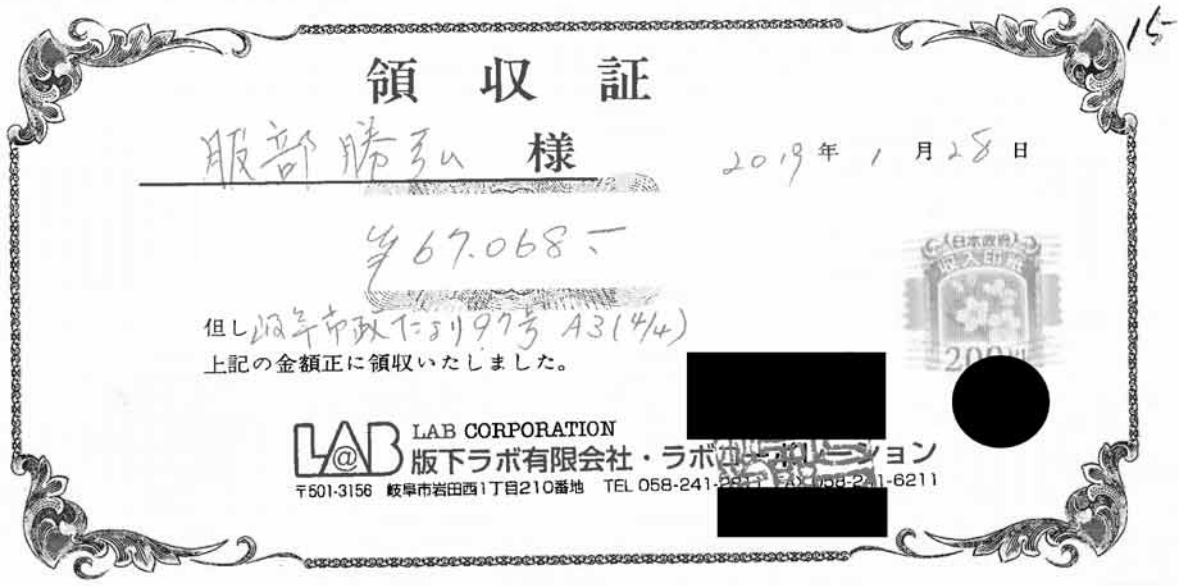 15
領収証
服部勝弘 様
2019年1月28日
¥67.068.-
但し岐阜市政だより97号 A3(4/4)
上記の金額正に領収いたしました。
日本政府
収入印紙
200円
L@B LAB CORPORATION
版下ラボ有限会社・ラボコーポレーション
〒501-3156 岐阜市岩田西1丁目210番地 TEL 058-241- FAX 058-241-6211